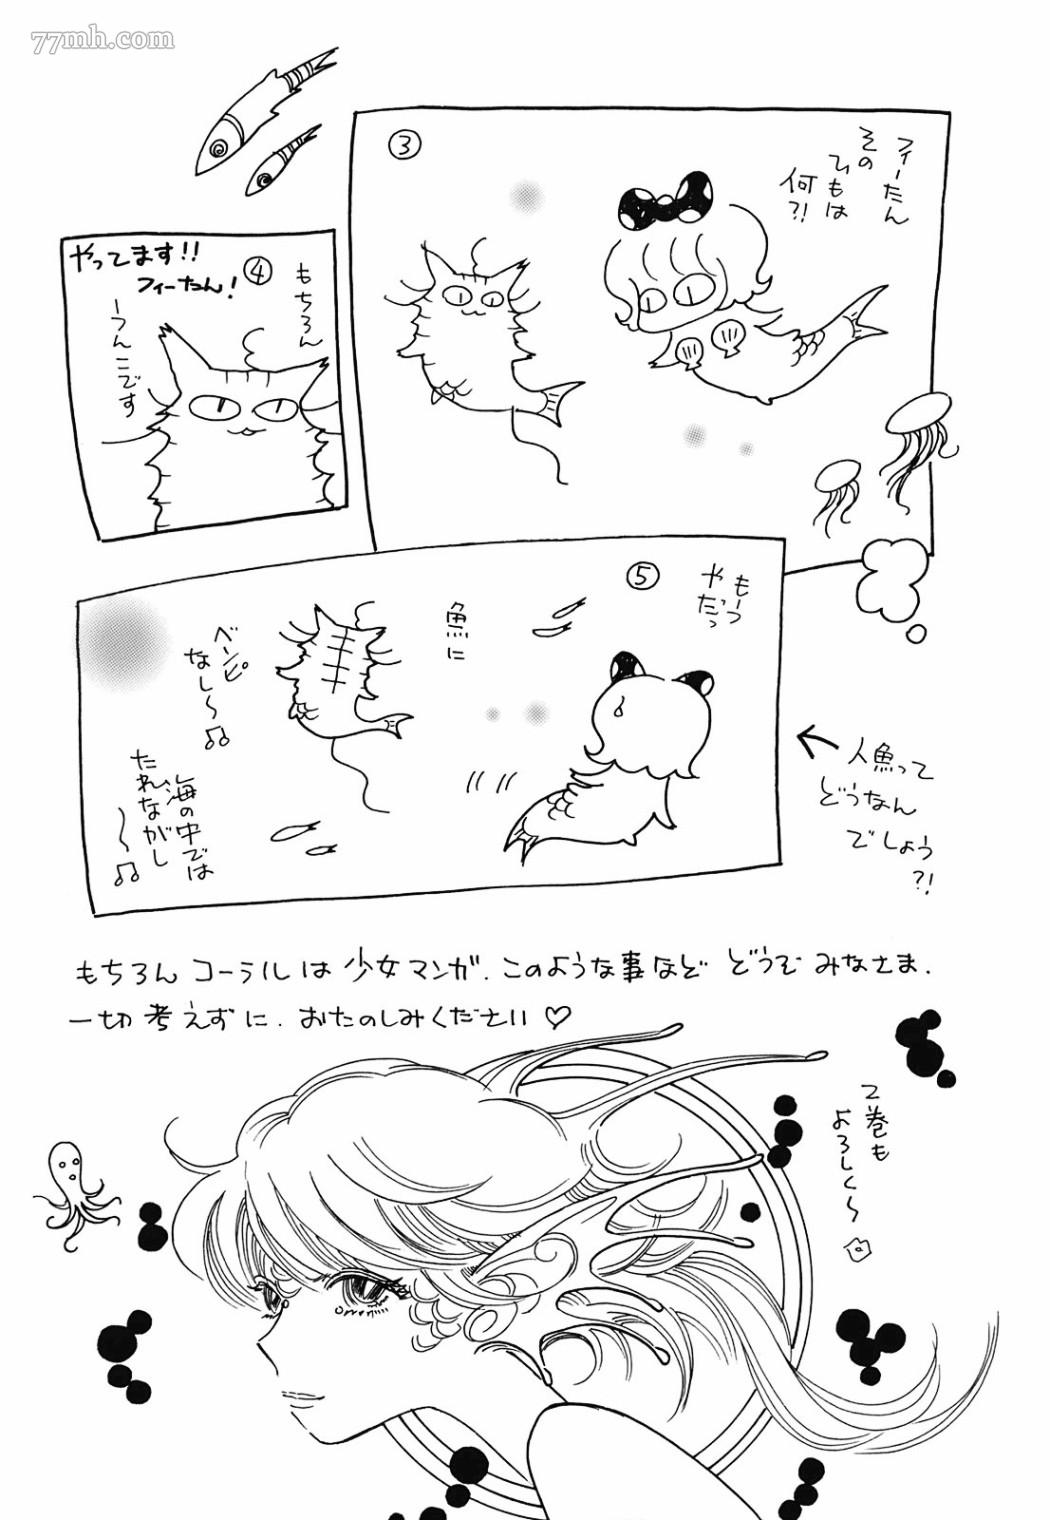 77mh.com
③
フィーたん
その
ひもは
何?!
④
やってます!!
フィーたん!
もちろん
ーうんこです
⑤
もーっ
やだっ
魚に
ベンピ
なし〜♫
海の中では
たれながし
〜♫
人魚って
どうなん
でしょう
?!
もちろんコーラルは少女マンガ.このような事などどうぞみなさま.
一切考えずに.おたのしみください♡
2巻も
よろしく〜